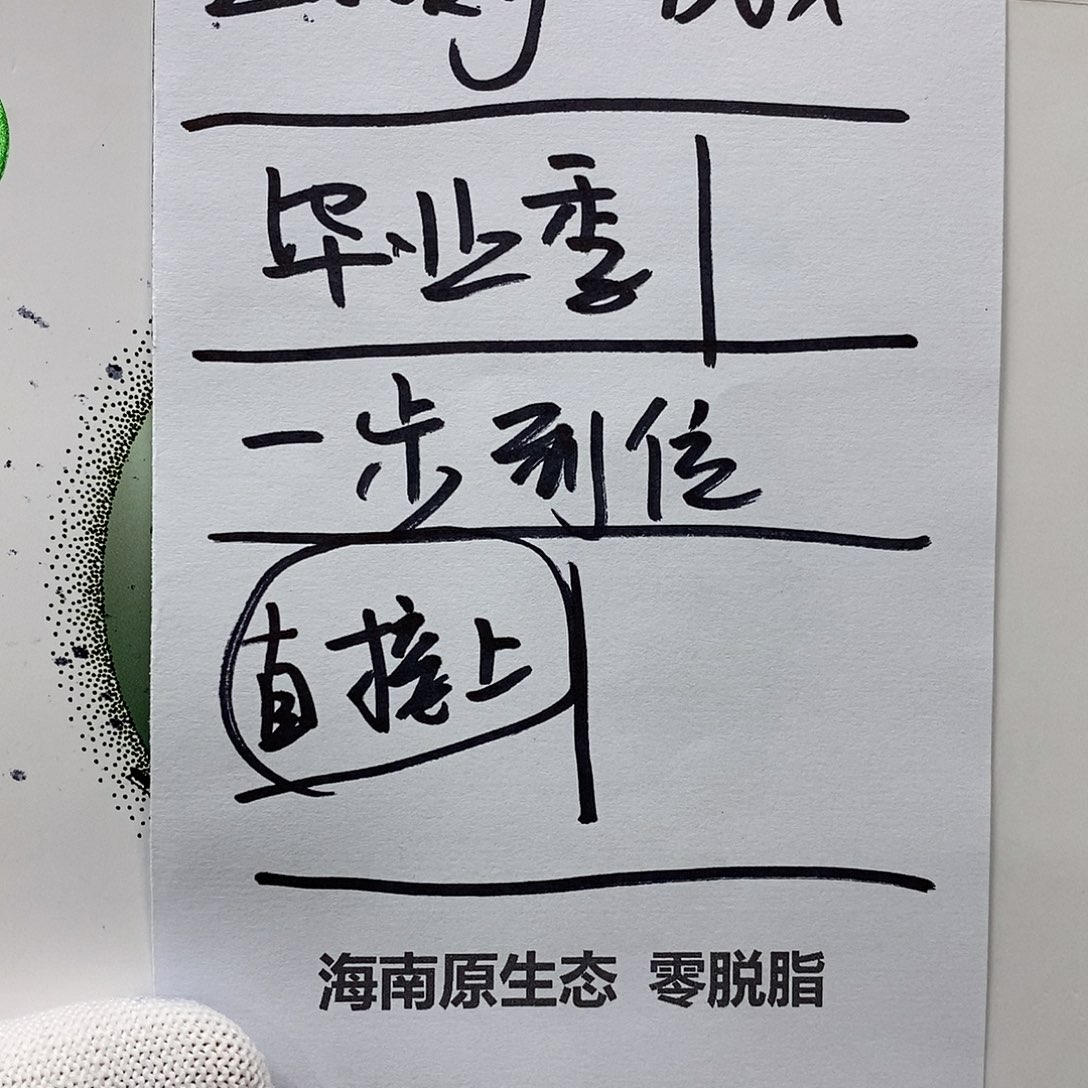 毕业季
一步到位
直接上
海南原生态 零脱脂